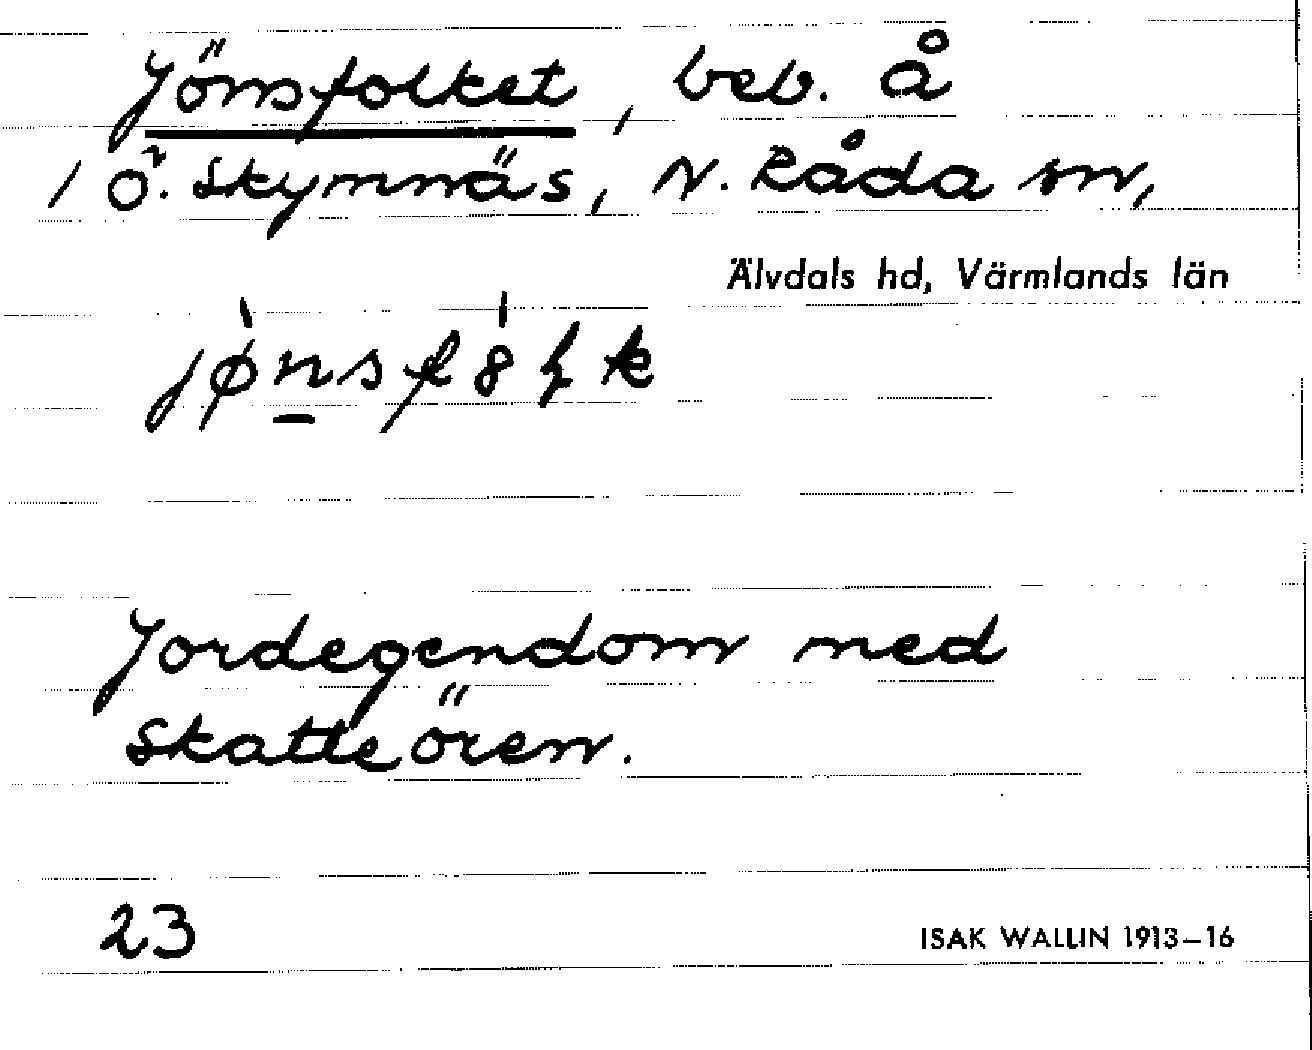 Jönsfolket, beb. å
1 Ö. Skymnäs, N. Råda sn,
Älvdals hd, Värmlands län
Jordegendom med
skatteören.
23
ISAK WALLIN 1913–16